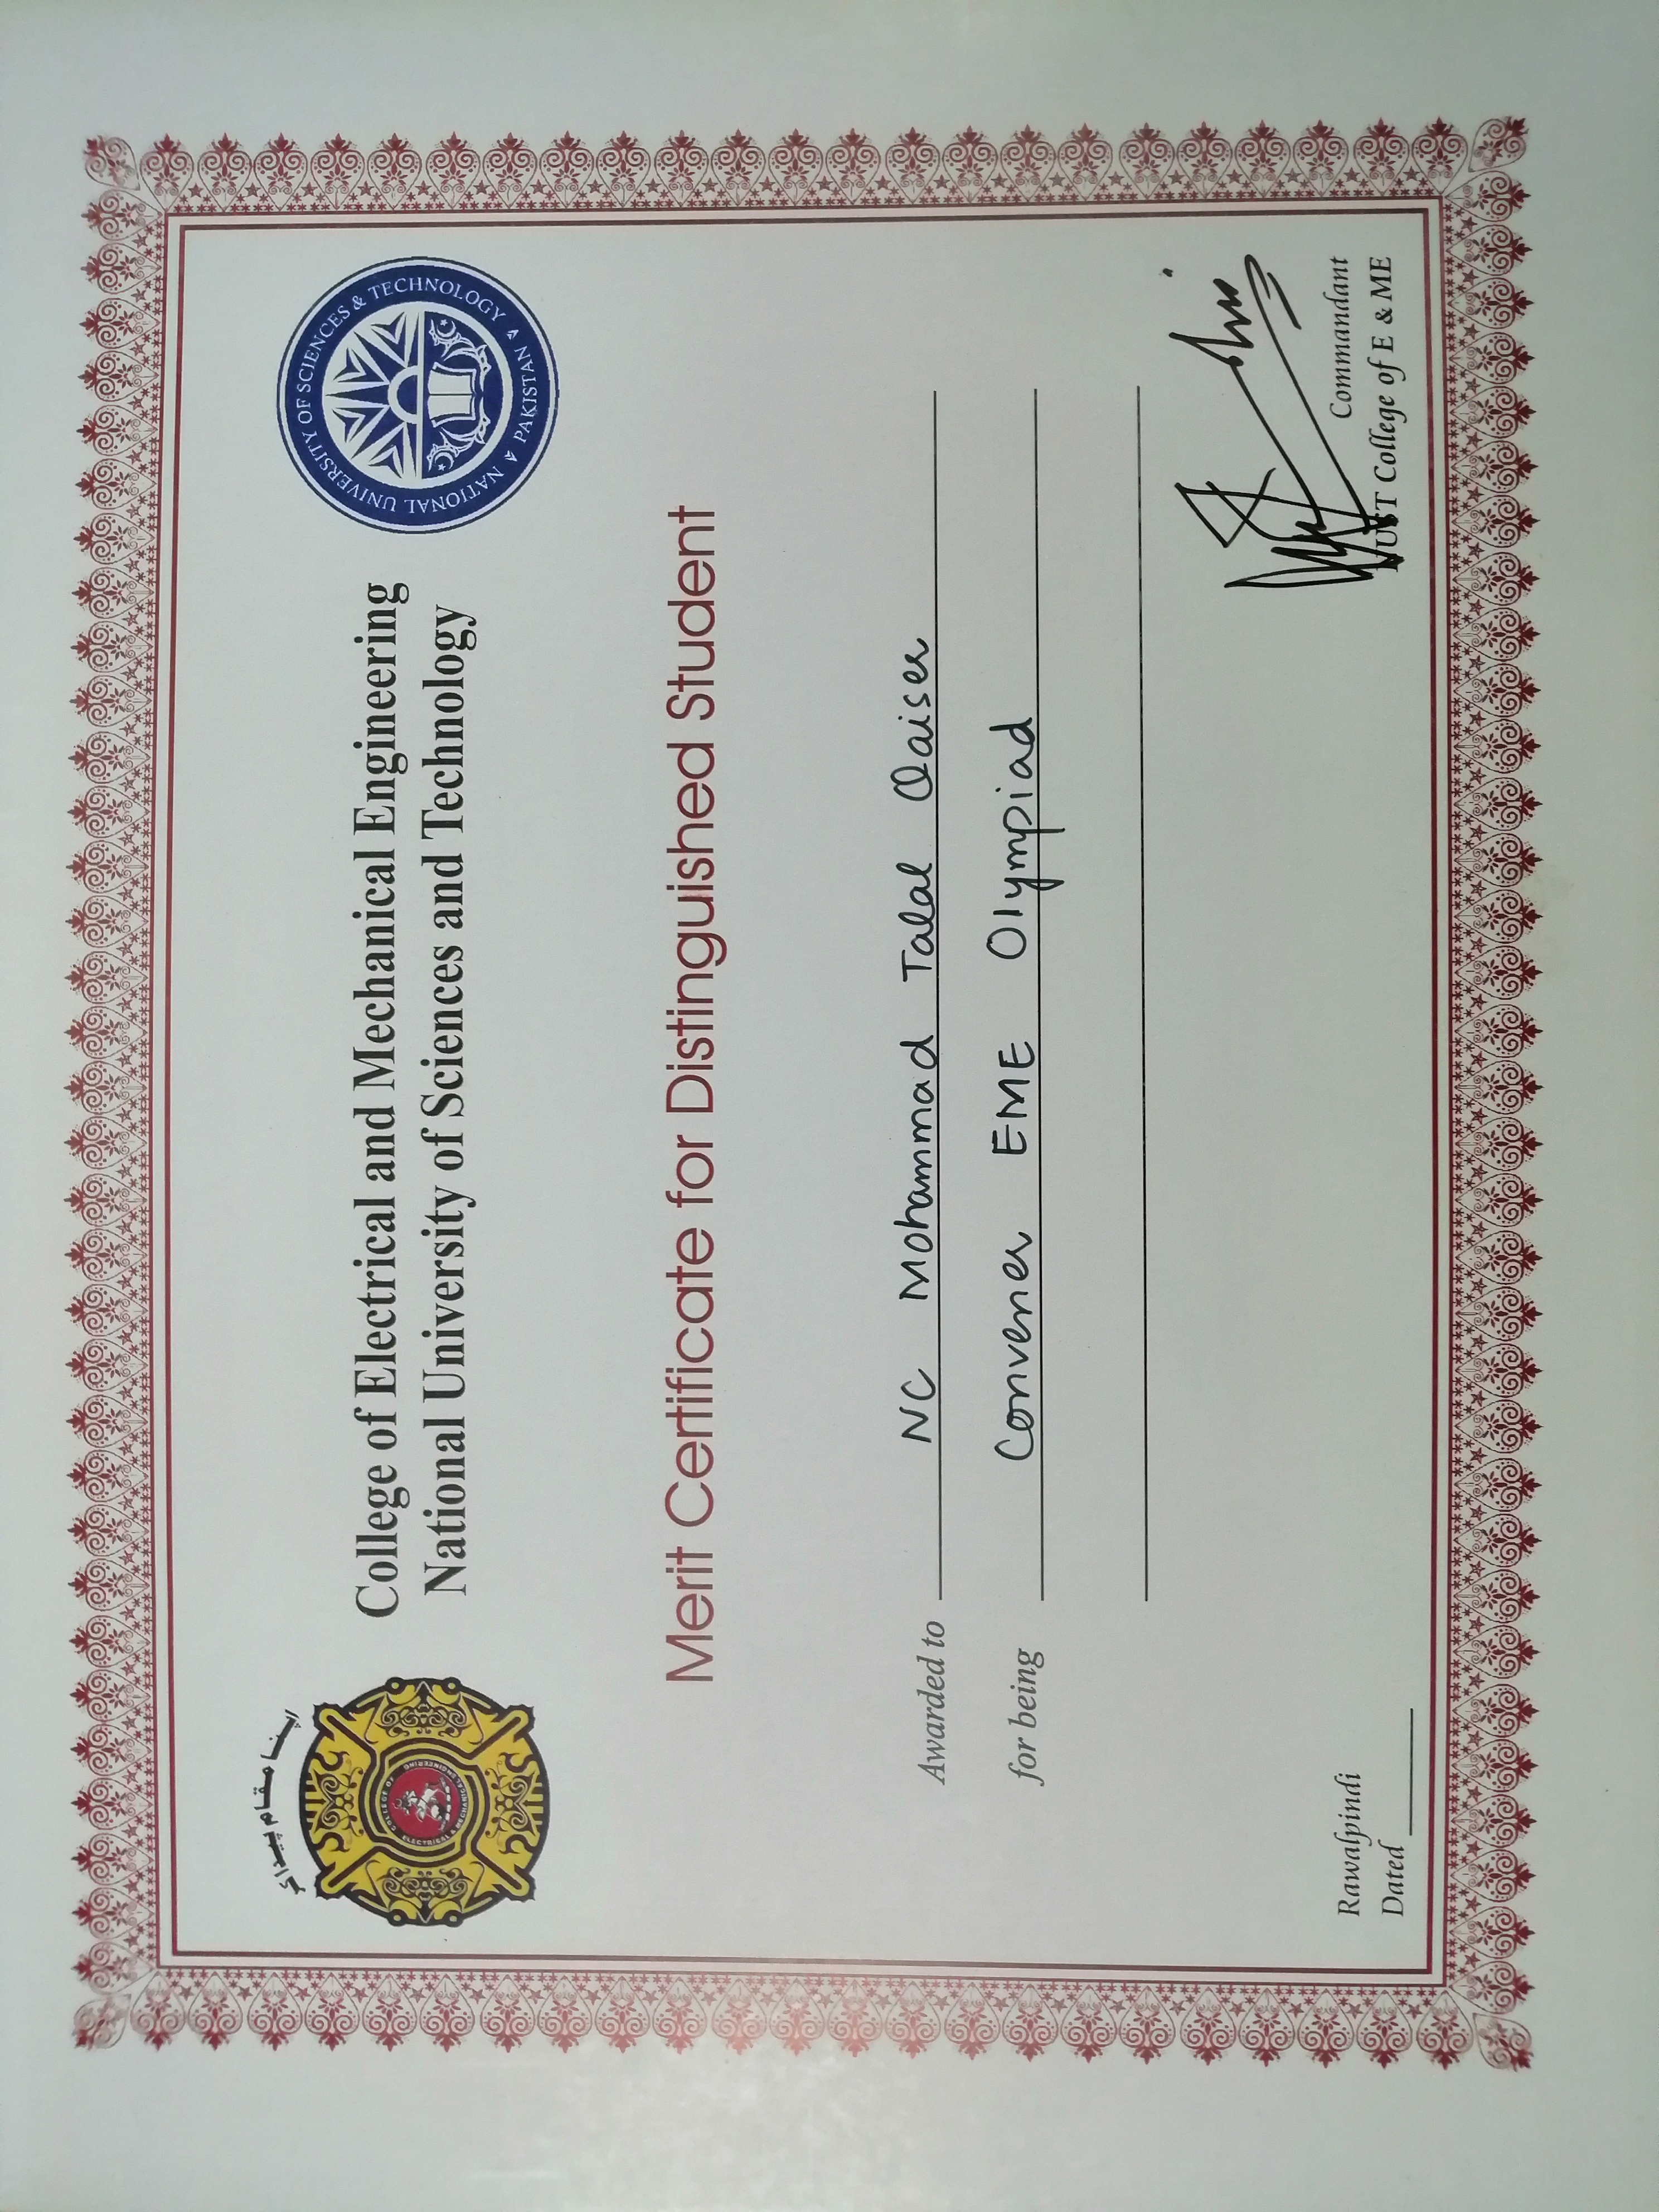 اپنا مقام پیدا کر
COLLEGE OF ELECTRICAL & MECHANICAL ENGINEERING
College of Electrical and Mechanical Engineering
National University of Sciences and Technology
NATIONAL UNIVERSITY OF SCIENCES & TECHNOLOGY
PAKISTAN
Merit Certificate for Distinguished Student
Awarded to NC Mohammad Talal Qaiser
for being Convener EME Olympiad
Rawalpindi
Dated
Commandant
NUST College of E & ME